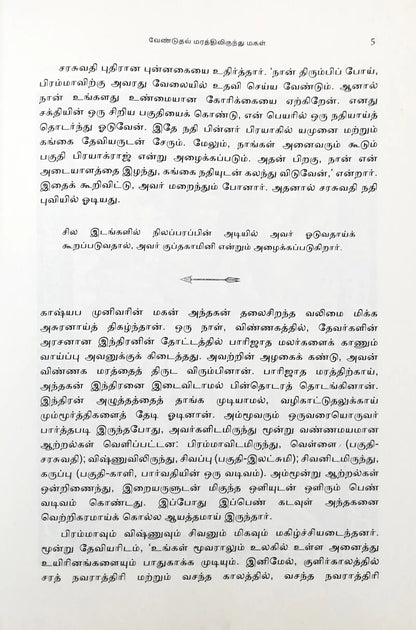 வேண்டுதல் மரத்திலிருந்து மகள்
5
சரசுவதி புதிரான புன்னகையை உதிர்த்தார். 'நான் திரும்பிப் போய்,
பிரம்மாவிற்கு அவரது வேலையில் உதவி செய்ய வேண்டும். ஆனால்
நான் உங்களது உண்மையான கோரிக்கையை ஏற்கிறேன். எனது
சக்தியின் ஒரு சிறிய பகுதியைக் கொண்டு, என் பெயரில் ஒரு நதியாய்த்
தொடர்ந்து ஓடுவேன். இதே நதி பின்னர் பிரயாகில் யமுனை மற்றும்
கங்கை தேவியருடன் சேரும். மேலும், நாங்கள் அனைவரும் கூடும்
பகுதி பிரயாக்ராஜ் என்று அழைக்கப்படும். அதன் பிறகு, நான் என்
அடையாளத்தை இழந்து, கங்கை நதியுடன் கலந்து விடுவேன்,' என்றார்.
இதைக் கூறிவிட்டு, அவர் மறைந்தும் போனார். அதனால் சரசுவதி நதி
புவியில் ஓடியது.
சில இடங்களில் நிலப்பரப்பின் அடியில் அவர் ஓடுவதாய்க்
கூறப்படுவதால், அவர் குப்தகாமினி என்றும் அழைக்கப்படுகிறார்.
காஷ்யப முனிவரின் மகன் அந்தகன் தலைசிறந்த வலிமை மிக்க
அசுரனாய்த் திகழ்ந்தான். ஒரு நாள், விண்ணகத்தில், தேவர்களின்
அரசனான இந்திரனின் தோட்டத்தில் பாரிஜாத மலர்களைக் காணும்
வாய்ப்பு அவனுக்குக் கிடைத்தது. அவற்றின் அழகைக் கண்டு, அவன்
விண்ணக மரத்தைத் திருட விரும்பினான். பாரிஜாத மரத்திற்காய்,
அந்தகன் இந்திரனை இடைவிடாமல் பின்தொடரத் தொடங்கினான்.
இந்திரன் அழுத்தத்தைத் தாங்க முடியாமல், வழிகாட்டுதலுக்காய்
மும்மூர்த்திகளைத் தேடி ஓடினான். அம்மூவரும் ஒருவரையொருவர்
பார்த்தபடி இருந்தபோது, அவர்களிடமிருந்து மூன்று வண்ணமயமான
ஆற்றல்கள் வெளிப்பட்டன: பிரம்மாவிடமிருந்து, வெள்ளை (பகுதி-
சரசுவதி); விஷ்ணுவிலிருந்து, சிவப்பு (பகுதி-இலட்சுமி); சிவனிடமிருந்து,
கருப்பு (பகுதி-காளி, பார்வதியின் ஒரு வடிவம்). அம்மூன்று ஆற்றல்கள்
ஒன்றிணைந்து, இறையருளுடன் மிகுந்த ஒளியுடன் ஒளிரும் பெண்
வடிவம் கொண்டது. இப்போது இப்பெண் கடவுள் அந்தகனை
வெற்றிகரமாய்க் கொல்ல ஆயத்தமாய் இருந்தார்.
பிரம்மாவும் விஷ்ணுவும் சிவனும் மிகவும் மகிழ்ச்சியடைந்தனர்.
மூன்று தேவியரிடம், 'உங்கள் மூவராலும் உலகில் உள்ள அனைத்து
உயிரினங்களையும் பாதுகாக்க முடியும். இனிமேல், குளிர்காலத்தில்
சரத் நவராத்திரி மற்றும் வசந்த காலத்தில், வசந்த நவராத்திரி